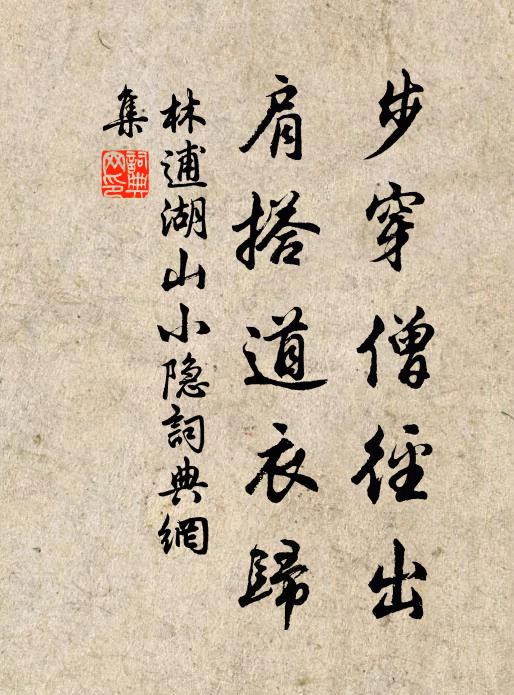 步穿僧徑出
肩搭道衣歸
林逋湖山小隐詞典網
集
詞典网印